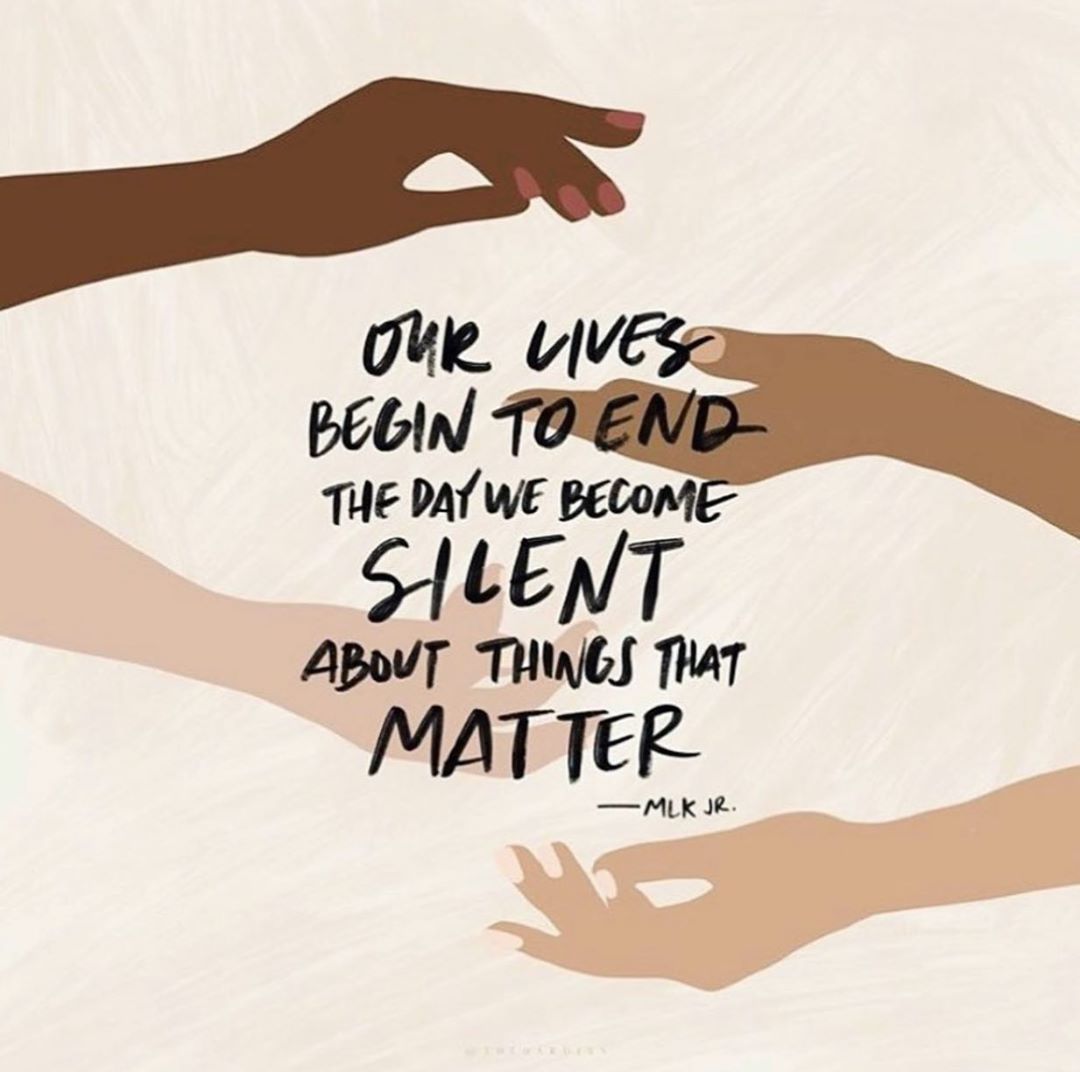 OUR LIVES
BEGIN TO END
THE DAY WE BECOME
SILENT
ABOUT THINGS THAT
MATTER
—MLK JR.